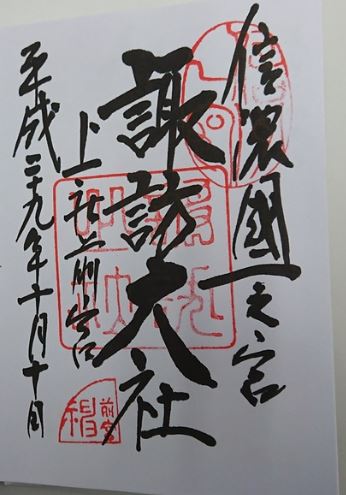 信濃國一之宮
諏訪大社
上社前宮
平成二十九年十月十日
前宮